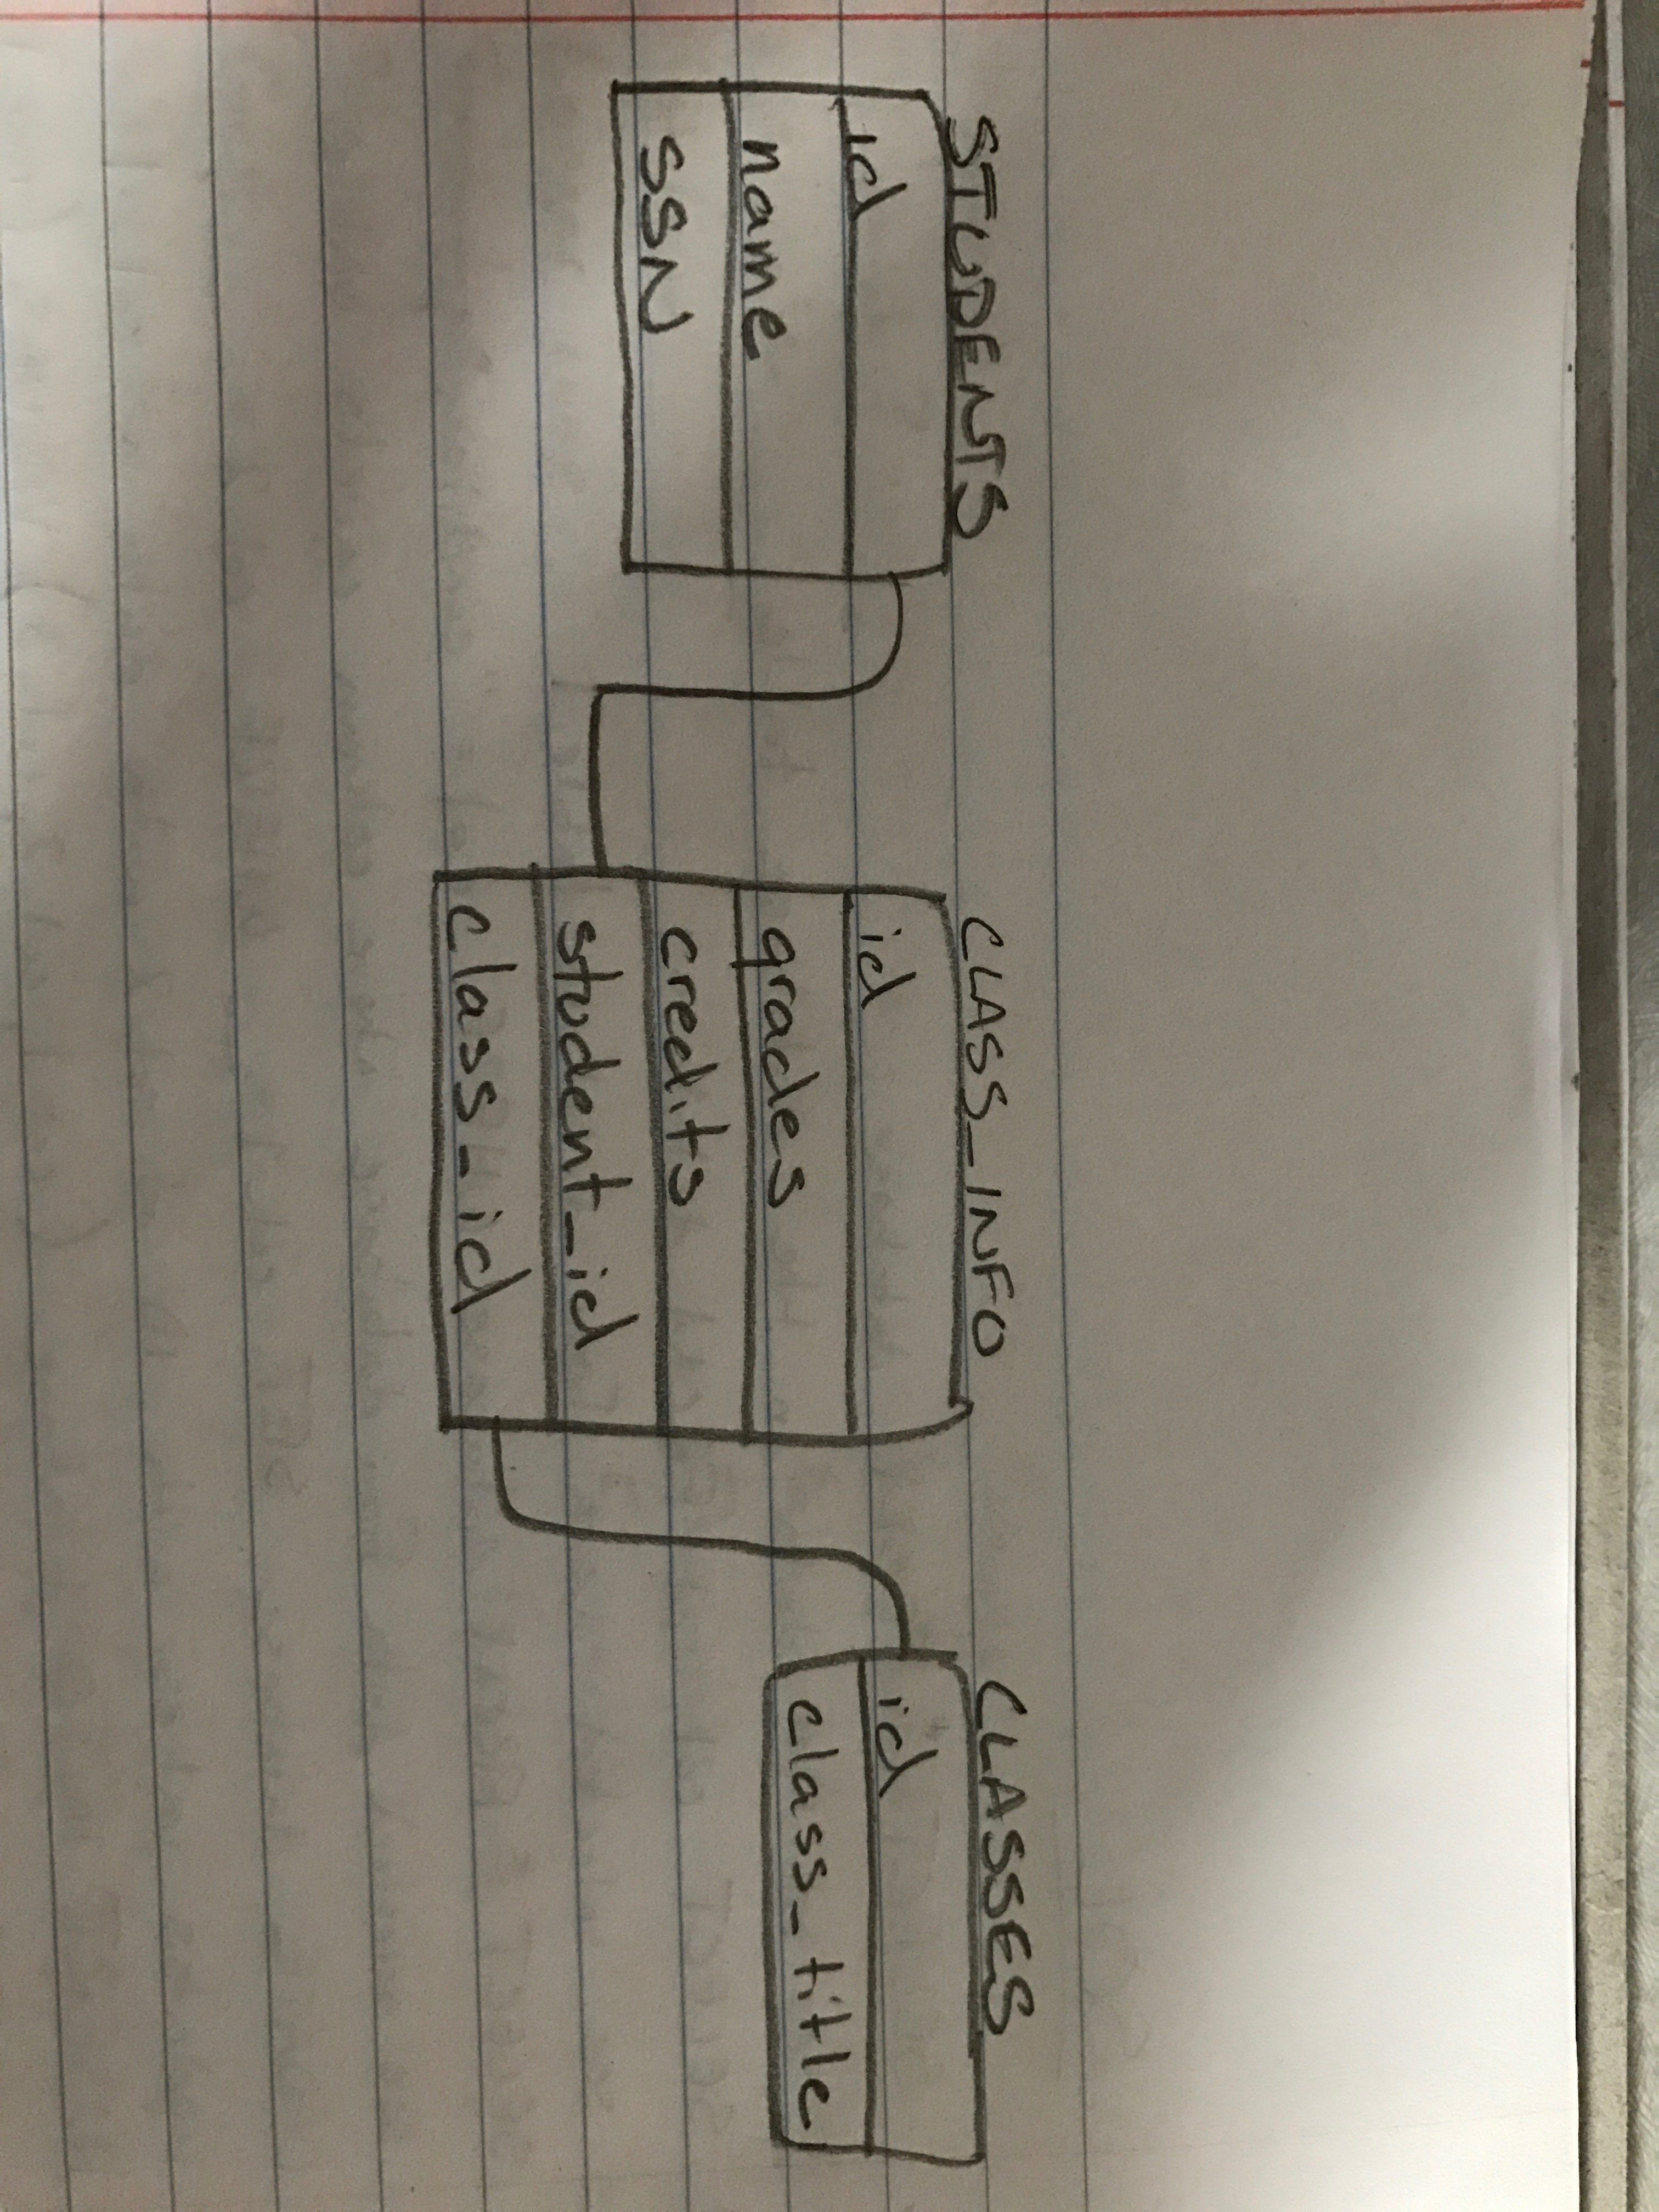 STUDENTS
id
name
SSN
CLASS_INFO
id
grades
credits
student_id
class_id
CLASSES
id
class_title